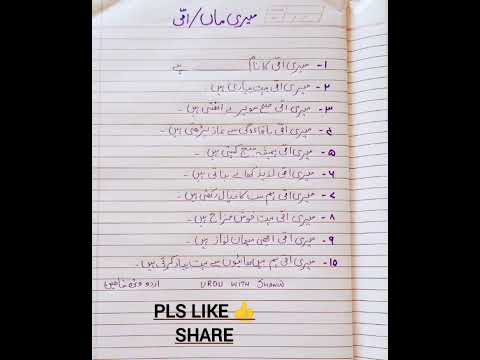 میری ماں/امّی
۱- میری امّی کا نام ________ ہے
۲- میری امّی بہت پیاری ہیں -
۳- میری امّی صبح سویرے اٹھتی ہیں -
۴- میری امّی باقاعدگی سے نماز پڑھتی ہیں -
۵- میری امّی ہمیشہ سچ کہتی ہیں -
۶- میری امّی لذیذ کھانے بناتی ہیں -
۷- میری امّی ہم سب کا خیال رکھتی ہیں -
۸- میری امّی بہت خوش مزاج ہیں -
۹- میری امّی اچھی مہمان نواز ہیں -
۱۰- میری امّی ہم بہن بھائیوں سے بہت پیار کرتی ہیں -
URDU WITH اردو وِد
PLS LIKE 👍
SHARE